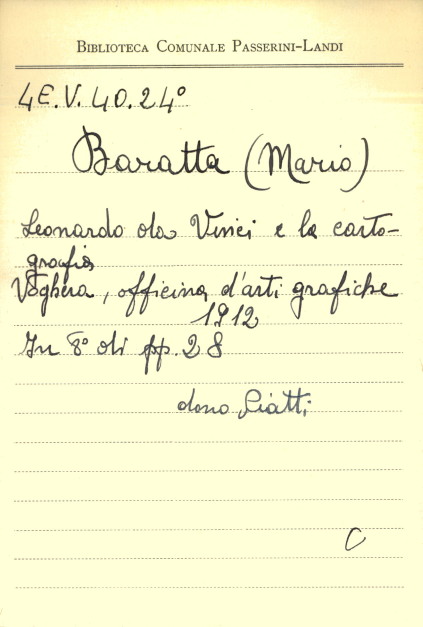 BIBLIOTECA COMUNALE PASSERINI-LANDI
4E.V.40.24°
Baratta (Mario)
Leonardo da Vinci e la carto-
grafia
Voghera, officina d'arti grafiche
1912
In 8° di pp. 28
dono Piatti
C